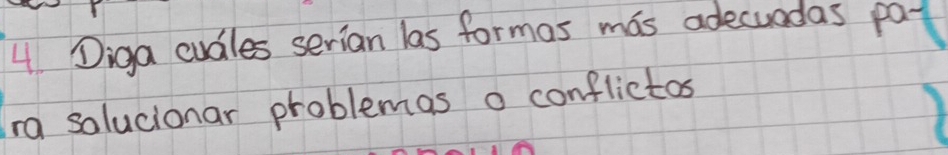 4. Diga cuáles serían las formas más adecuadas pa-
ra solucionar problemas o conflictos